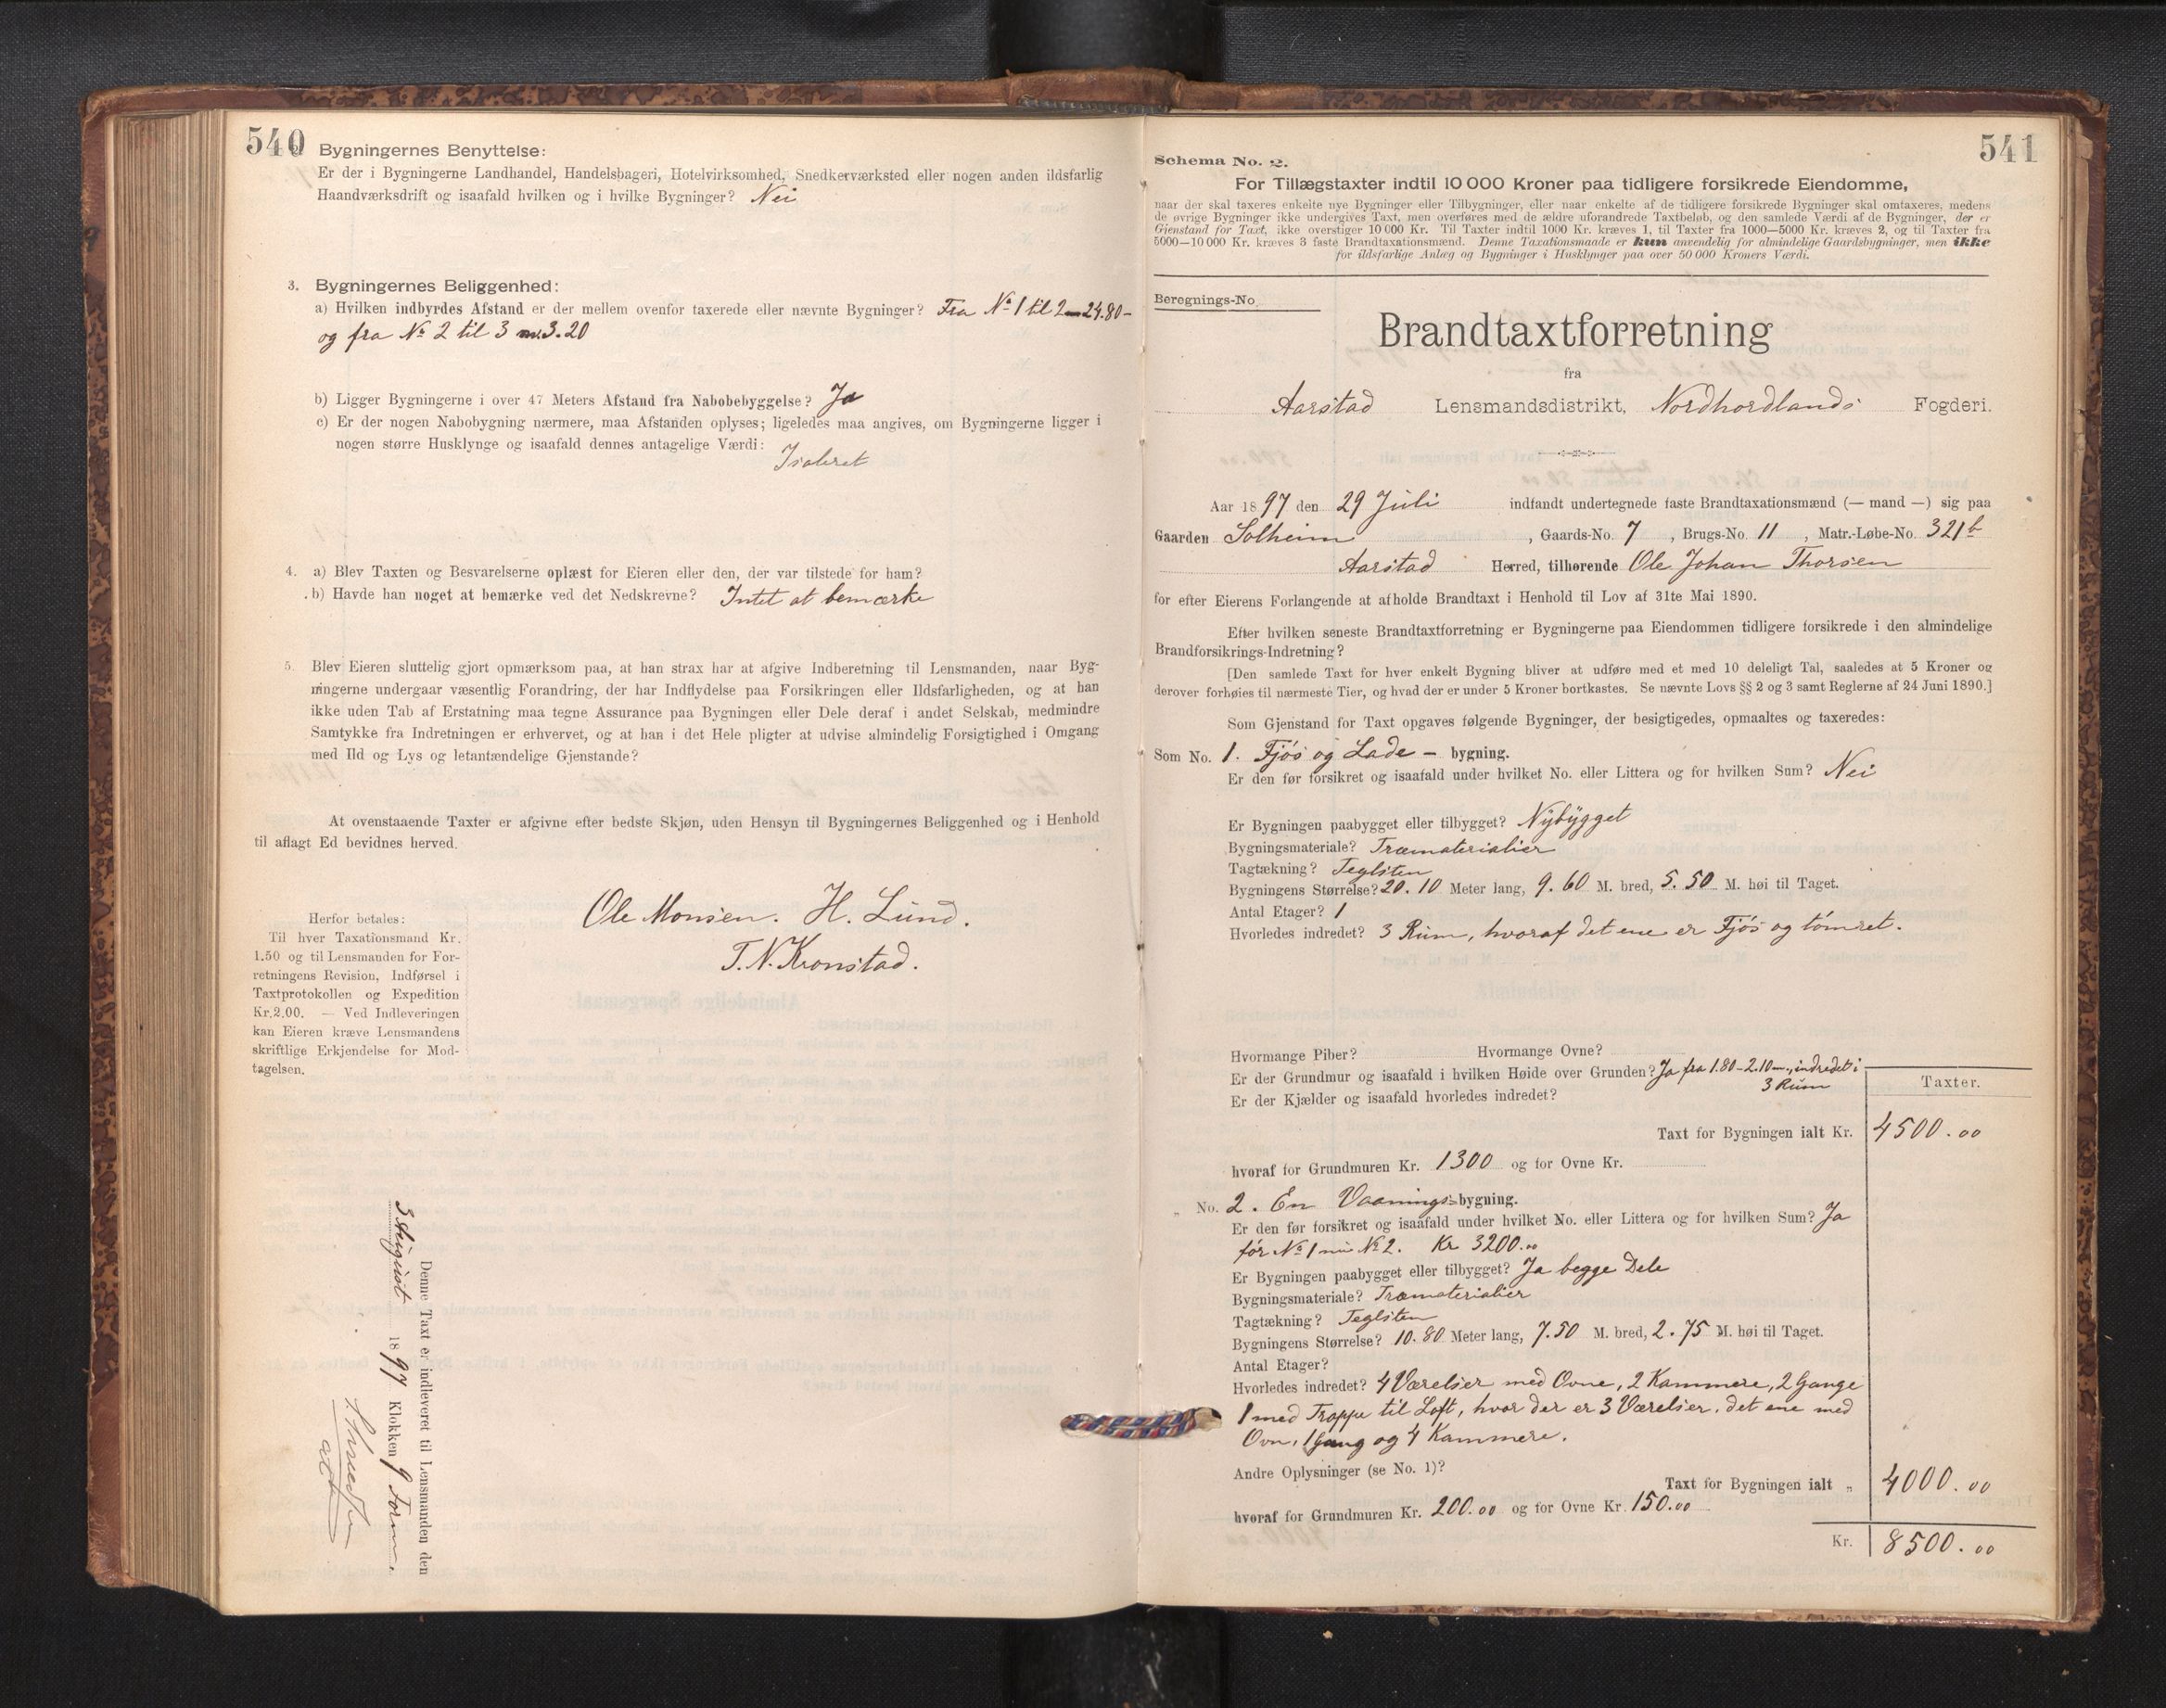 540
2. Bygningernes Benyttelse:
Er der i Bygningerne Landhandel, Handelsbageri, Hotelvirksomhed, Snedkerværksted eller nogen anden ildsfarlig
Haandværksdrift og isaafald hvilken og i hvilke Bygninger? Nei
3. Bygningernes Beliggenhed:
a) Hvilken indbyrdes Afstand er der mellem ovenfor taxerede eller nævnte Bygninger? Fra No 1 til 2 m 24.80 -
og fra No 2 til 3 m. 3.20
b) Ligger Bygningerne i over 47 Meters Afstand fra Nabobebyggelse? Ja
c) Er der nogen Nabobygning nærmere, maa Afstanden oplyses; ligeledes maa angives, om Bygningerne ligger i
nogen større Husklynge og isaafald dennes antagelige Værdi:
Isoleret
4. a) Blev Taxten og Besvarelserne oplæst for Eieren eller den, der var tilstede for ham?
b) Havde han noget at bemærke ved det Nedskrevne? Intet at bemærke
5. Blev Eieren sluttelig gjort opmærksom paa, at han strax har at afgive Indberetning til Lensmanden, naar Byg-
ningerne undergaar væsentlig Forandring, der har Indflydelse paa Forsikringen eller Ildsfarligheden, og at han
ikke uden Tab af Erstatning maa tegne Assurance paa Bygningen eller Dele deraf i andet Selskab, medmindre
Samtykke fra Indretningen er erhvervet, og at han i det Hele pligter at udvise almindelig Forsigtighed i Omgang
med Ild og Lys og letantændelige Gjenstande?
At ovenstaaende Taxter er afgivne efter bedste Skjøn, uden Hensyn til Bygningernes Beliggenhed og i Henhold
til aflagt Ed bevidnes herved.
Ole Monsen. H. Lund.
T. N. Kronstad.
Herfor betales:
Til hver Taxationsmand Kr.
1.50 og til Lensmanden for For-
retningens Revision, Indførsel i
Taxtprotokollen og Expedition
Kr. 2.00. — Ved Indleveringen
kan Eieren kræve Lensmandens
skriftlige Erkjendelse for Mod-
tagelsen.
Denne Taxt er indleveret til Lensmanden den
3 August 1897 Klokken 9 Form.
541
Schema No. 2.
For Tillægstaxter indtil 10 000 Kroner paa tidligere forsikrede Eiendomme,
naar der skal taxeres enkelte nye Bygninger eller Tilbygninger, eller naar enkelte af de tidligere forsikrede Bygninger skal omtaxeres, medens
de øvrige Bygninger ikke undergives Taxt, men overføres med de ældre uforandrede Taxtbeløb, og den samlede Værdi af de Bygninger, der er
Gjenstand for Taxt, ikke overstiger 10 000 Kr. Til Taxter indtil 1000 Kr. kræves 1, til Taxter fra 1000—5000 Kr. kræves 2, og til Taxter fra
5000—10 000 Kr. kræves 3 faste Brandtaxationsmænd. Denne Taxationsmaade er kun anvendelig for almindelige Gaardsbygninger, men ikke
for ildsfarlige Anlæg og Bygninger i Husklynger paa over 50 000 Kroners Værdi.
Beregnings-No.
Brandtaxtforretning
fra
Aarstad Lensmandsdistrikt, Nordhordlands Fogderi.
Aar 1897 den 29 Juli indfandt undertegnede faste Brandtaxationsmænd (— mand —) sig paa
Gaarden Solheim, Gaards-No. 7, Brugs-No. 11, Matr.-Løbe-No. 321b
Aarstad Herred, tilhørende Ole Johan Thorsen
for efter Eierens Forlangende at afholde Brandtaxt i Henhold til Lov af 31te Mai 1890.
Efter hvilken seneste Brandtaxtforretning er Bygningerne paa Eiendommen tidligere forsikrede i den almindelige
Brandforsikrings-Indretning?
[Den samlede Taxt for hver enkelt Bygning bliver at udføre med et med 10 deleligt Tal, saaledes at 5 Kroner og
derover forhøies til nærmeste Tier, og hvad der er under 5 Kroner bortkastes. Se nævnte Lovs §§ 2 og 3 samt Reglerne af 24 Juni 1890.]
Som Gjenstand for Taxt opgaves følgende Bygninger, der besigtigedes, opmaaltes og taxeredes:
Som No. 1. Fjøs og Lade - bygning.
Er den før forsikret og isaafald under hvilket No. eller Littera og for hvilken Sum? Nei
Er Bygningen paabygget eller tilbygget? Nybygget
Bygningsmateriale? Træmaterialier
Tagtækning? Teglsten
Bygningens Størrelse? 20.10 Meter lang, 9.60 M. bred, 5.50 M. høi til Taget.
Antal Etager? 1
Hvorledes indredet? 3 Rum, hvoraf det ene er Fjøs og tømret.
Hvormange Piber? Hvormange Ovne?
Er der Grundmur og isaafald i hvilken Høide over Grunden? Ja fra 1.80 - 2.10 m., indredet i
3 Rum
Er der Kjælder og isaafald hvorledes indredet?
Taxter.
Taxt for Bygningen ialt Kr. 4500.00
hvoraf for Grundmuren Kr. 1300 og for Ovne Kr.
„ No. 2. En Vaanings-bygning.
Er den før forsikret og isaafald under hvilket No. eller Littera og for hvilken Sum? Ja
før No 1 nu No 2. Kr 3200.00
Er Bygningen paabygget eller tilbygget? Ja begge Dele
Bygningsmateriale? Træmaterialier
Tagtækning? Teglsten
Bygningens Størrelse? 10.80 Meter lang, 7.50 M. bred, 2.75 M. høi til Taget.
Antal Etager?
Hvorledes indredet? 4 Værelser med Ovne, 2 Kammere, 2 Gange
1 med Trappe til Loft, hvor der er 3 Værelser, det ene med
Ovn, 1 Gang og 4 Kammere.
Andre Oplysninger (se No. 1)?
Taxt for Bygningen ialt „ 4000.00
hvoraf for Grundmuren Kr. 200.00 og for Ovne Kr. 150.00
Kr. 8500.00